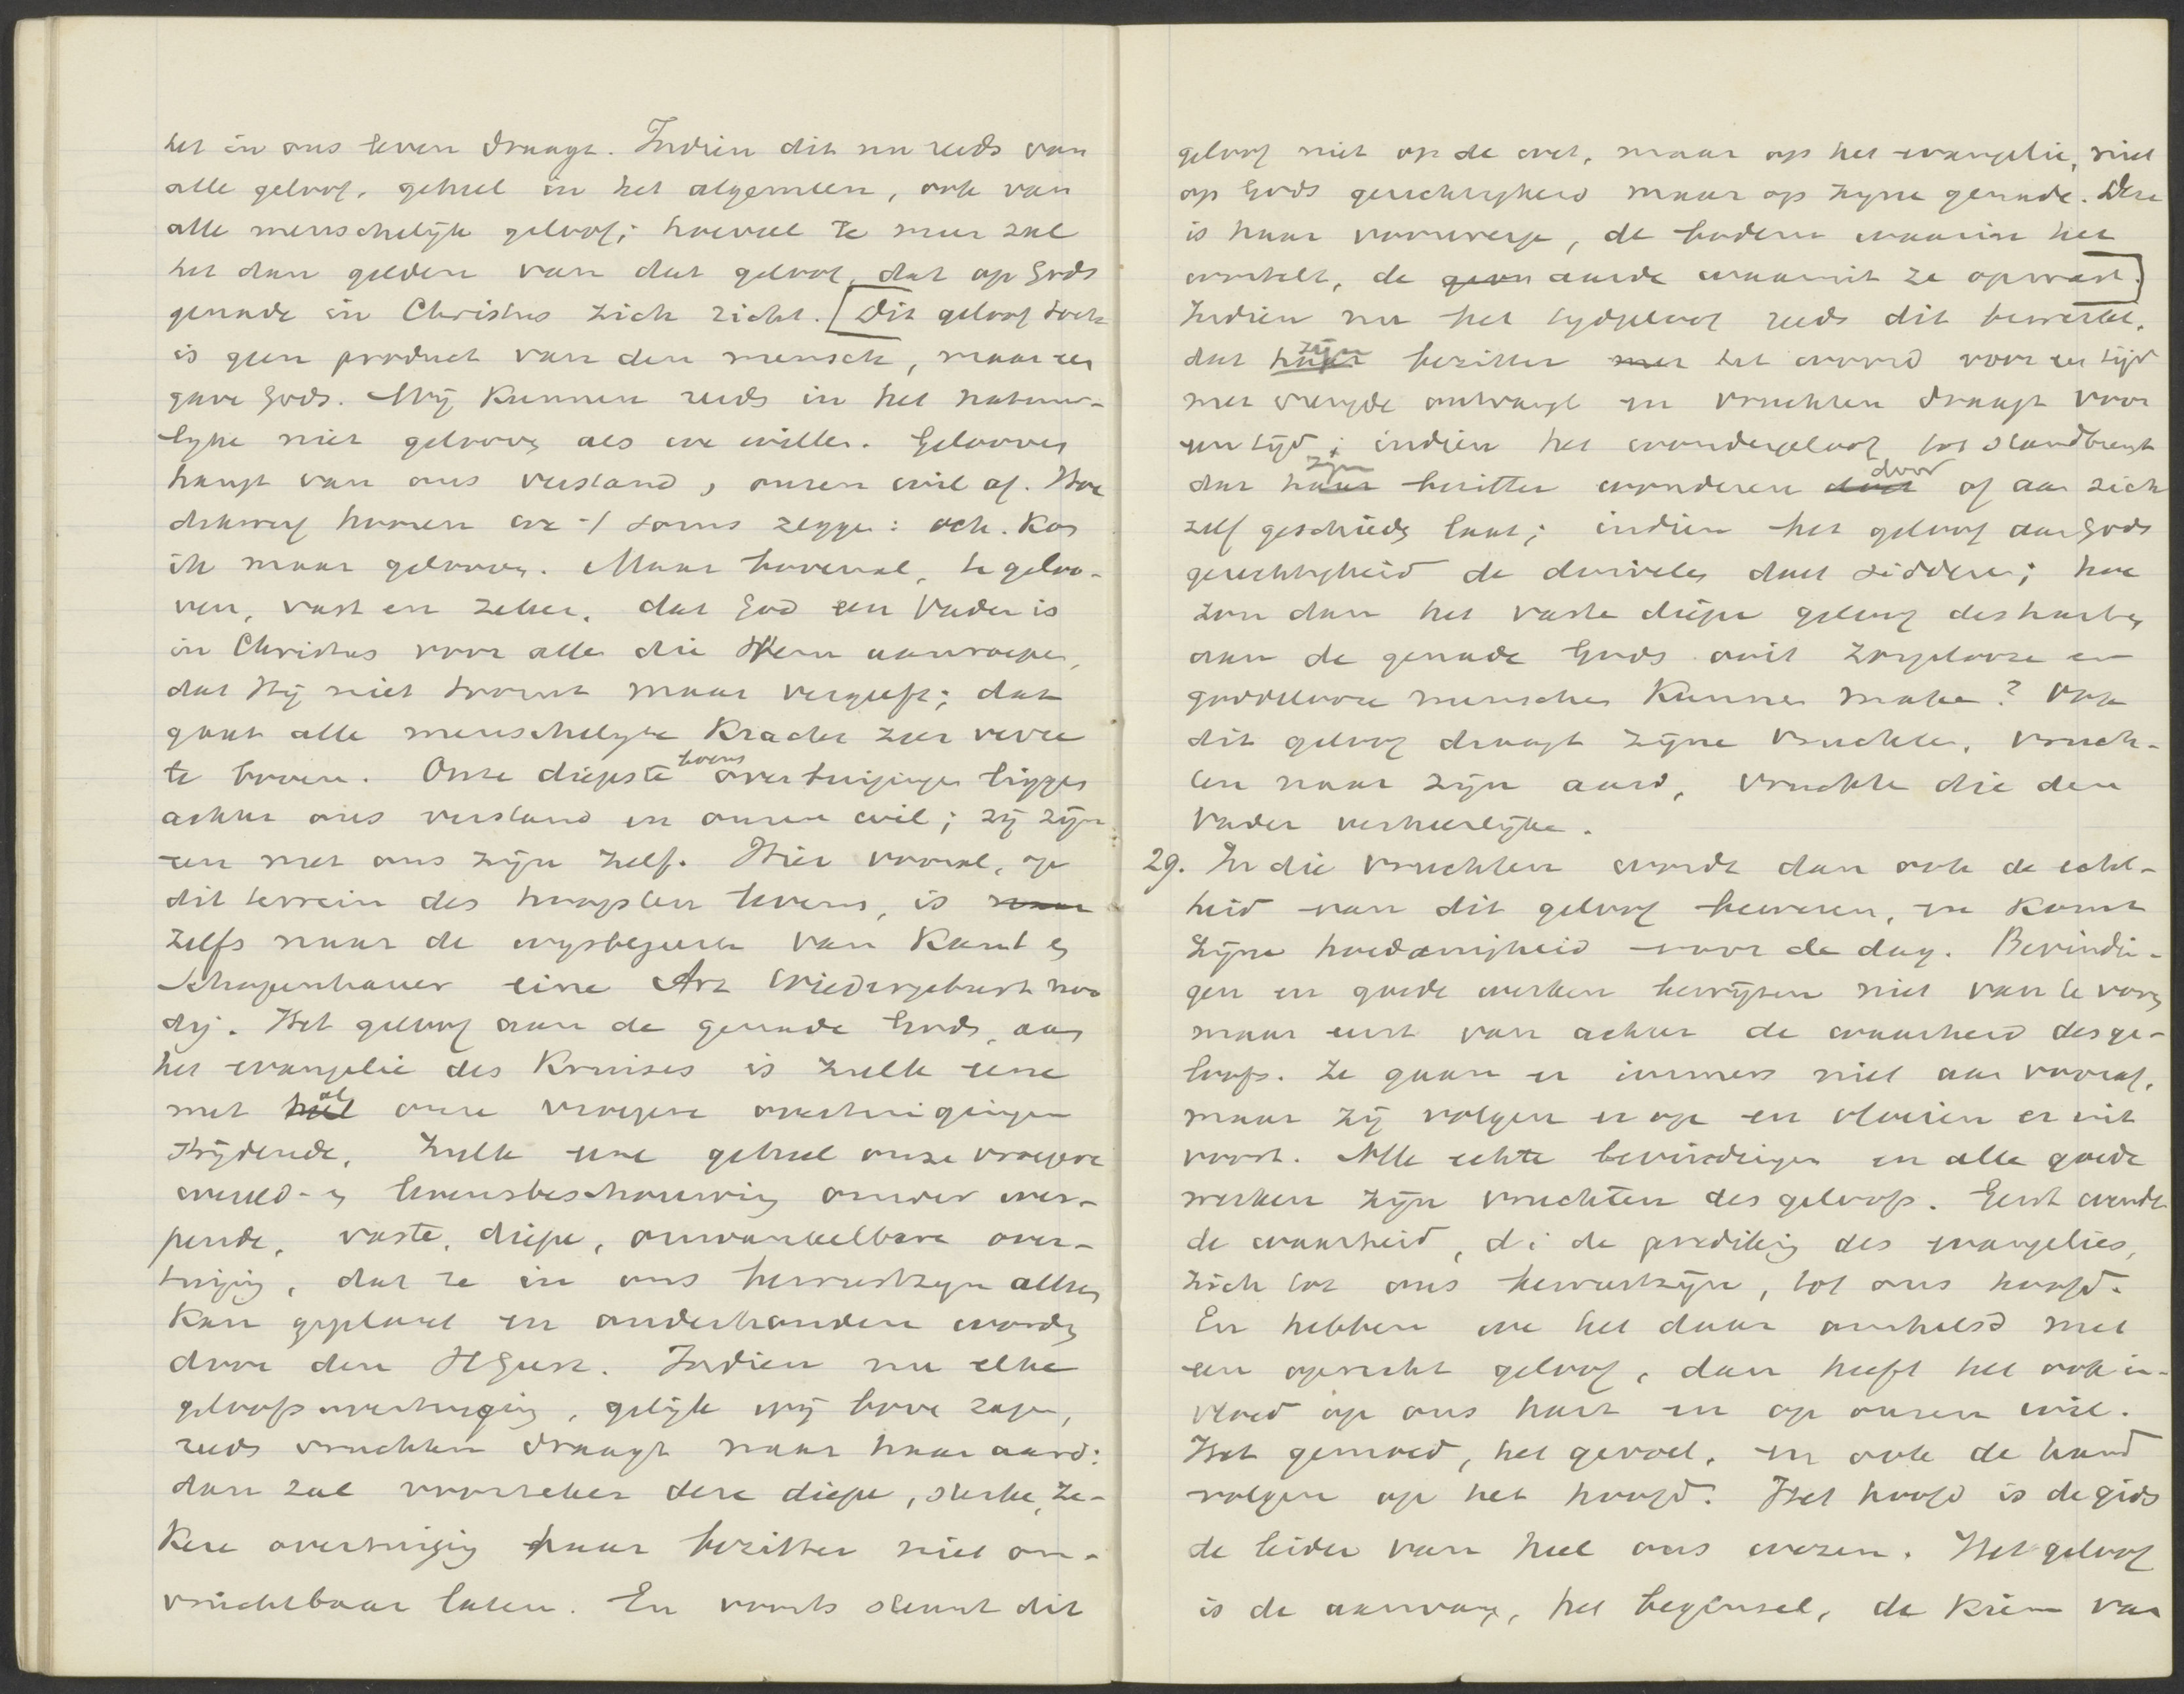 het in ons leven draagt. Indien dit nu reeds van
alle geloof, geheel in het algemeen, ook van
alle menschelijk geloof; hoeveel te meer zal
het dan gelden van dat geloof, dat op Gods
genade in Christus zich richt. [Dit geloof toch
is geen product van den mensch, maar een
gave Gods. Wij kunnen reeds in het natuur-
lyke niet gelooven als we willen. Gelooven
hangt van ons verstand, onzen wil af. Hoe
dikwerf hooren we -/ soms zeggen: och. Kon
ik maar gelooven. Maar bovenal, te geloo-
ven, vast en zeker, dat God een Vader is
in Christus voor alle die Hem aanroepen,
dat Hij niet toornt maar vergeeft; dat
gaat alle menschelyke Krachten zeer verre
te boven. Onze diepste levensovertuigingen liggen
achter ons verstand en onzen wil; zij zijn
een met ons zijn zelf. Hier vooral, op
dit terrein des hoogsten levens, is
zelfs naar de wysbegeerte van Kant en
Schopenhauer eine Art Wiedergeburt noo
dig. Het geloof aan de genade Gods, aan
het evangelie des Kruises is zulk eene
met al onze vroegere overtuigingen
strijdende, zulk eene geheel onze vroegere
wereld- en levensbeschouwing omver wer-
pende, vaste, diepe, onwankelbare over-
tuiging, dat ze in ons bewustzyn alleen
kan geplant en onderhouden worden
door den HGeest. Indien nu elke
geloofsovertuiging, gelijk wij boven zagen,
reeds vruchten draagt naar haar aard:
dan zal voorzeker deze diepe, sterke, ze-
kere overtuiging haar bezitter niet on-
vruchtbaar laten. En voorts steunt dit
geloof niet op de wet, maar op het evangelie, niet
op Gods gerechtigheid maar op zyne genade. Deze
is haar voorwerp, de bodem waarin het
wortelt, de geen aarde waaruit ze opwast.]
Indien nu het tydgeloof reeds dit bewerkt,
dat zijn bezitter met het woord voor een tijd
met vreugde ontvangt en vruchten draagt voor
een tijd; indien het wondergeloof tot stand brengt
dat zijn bezitter wonderen doet door of aan zich
zelf geschieden laat; indien het geloof aan Gods
gerechtigheid de duivelen doet sidderen; hoe
zou dan het vaste diepe geloof des harten
aan de genade Gods ooit zorgelooze en
goddelooze menschen Kunnen maken? Ook
dit geloof draagt zijne vruchten, vruch-
ten naar zijn aard, vruchten die den
Vader verheerlijken.
29. In die vruchten wordt dan ook de echt-
heid van dit geloof bewezen, en komt
zijne hoedanigheid voor de dag. Bevindin-
gen en goede werken bewijzen niet van te voren
maar eerst van achter de waarheid des ge-
loofs. Ze gaan er immers niet aan vooraf,
maar zij volgen er op en vloeien er uit
voort. Alle echte bevindingen en alle goede
werken zijn vruchten des geloofs. Eerst wendt
de waarheid, d.i de prediking des evangelies,
zich tot ons bewustzijn, tot ons hoofd.
En hebben we het daar omhelsd met
een oprecht geloof, dan heeft het ook in-
vloed op ons hart en op onzen wil.
Het gemoed, het gevoel, en ook de hand
volgen op het hoofd. Het hoofd is de gids
de leider van heel ons wezen. Het geloof
is de aanvang, het beginsel, de kiem van